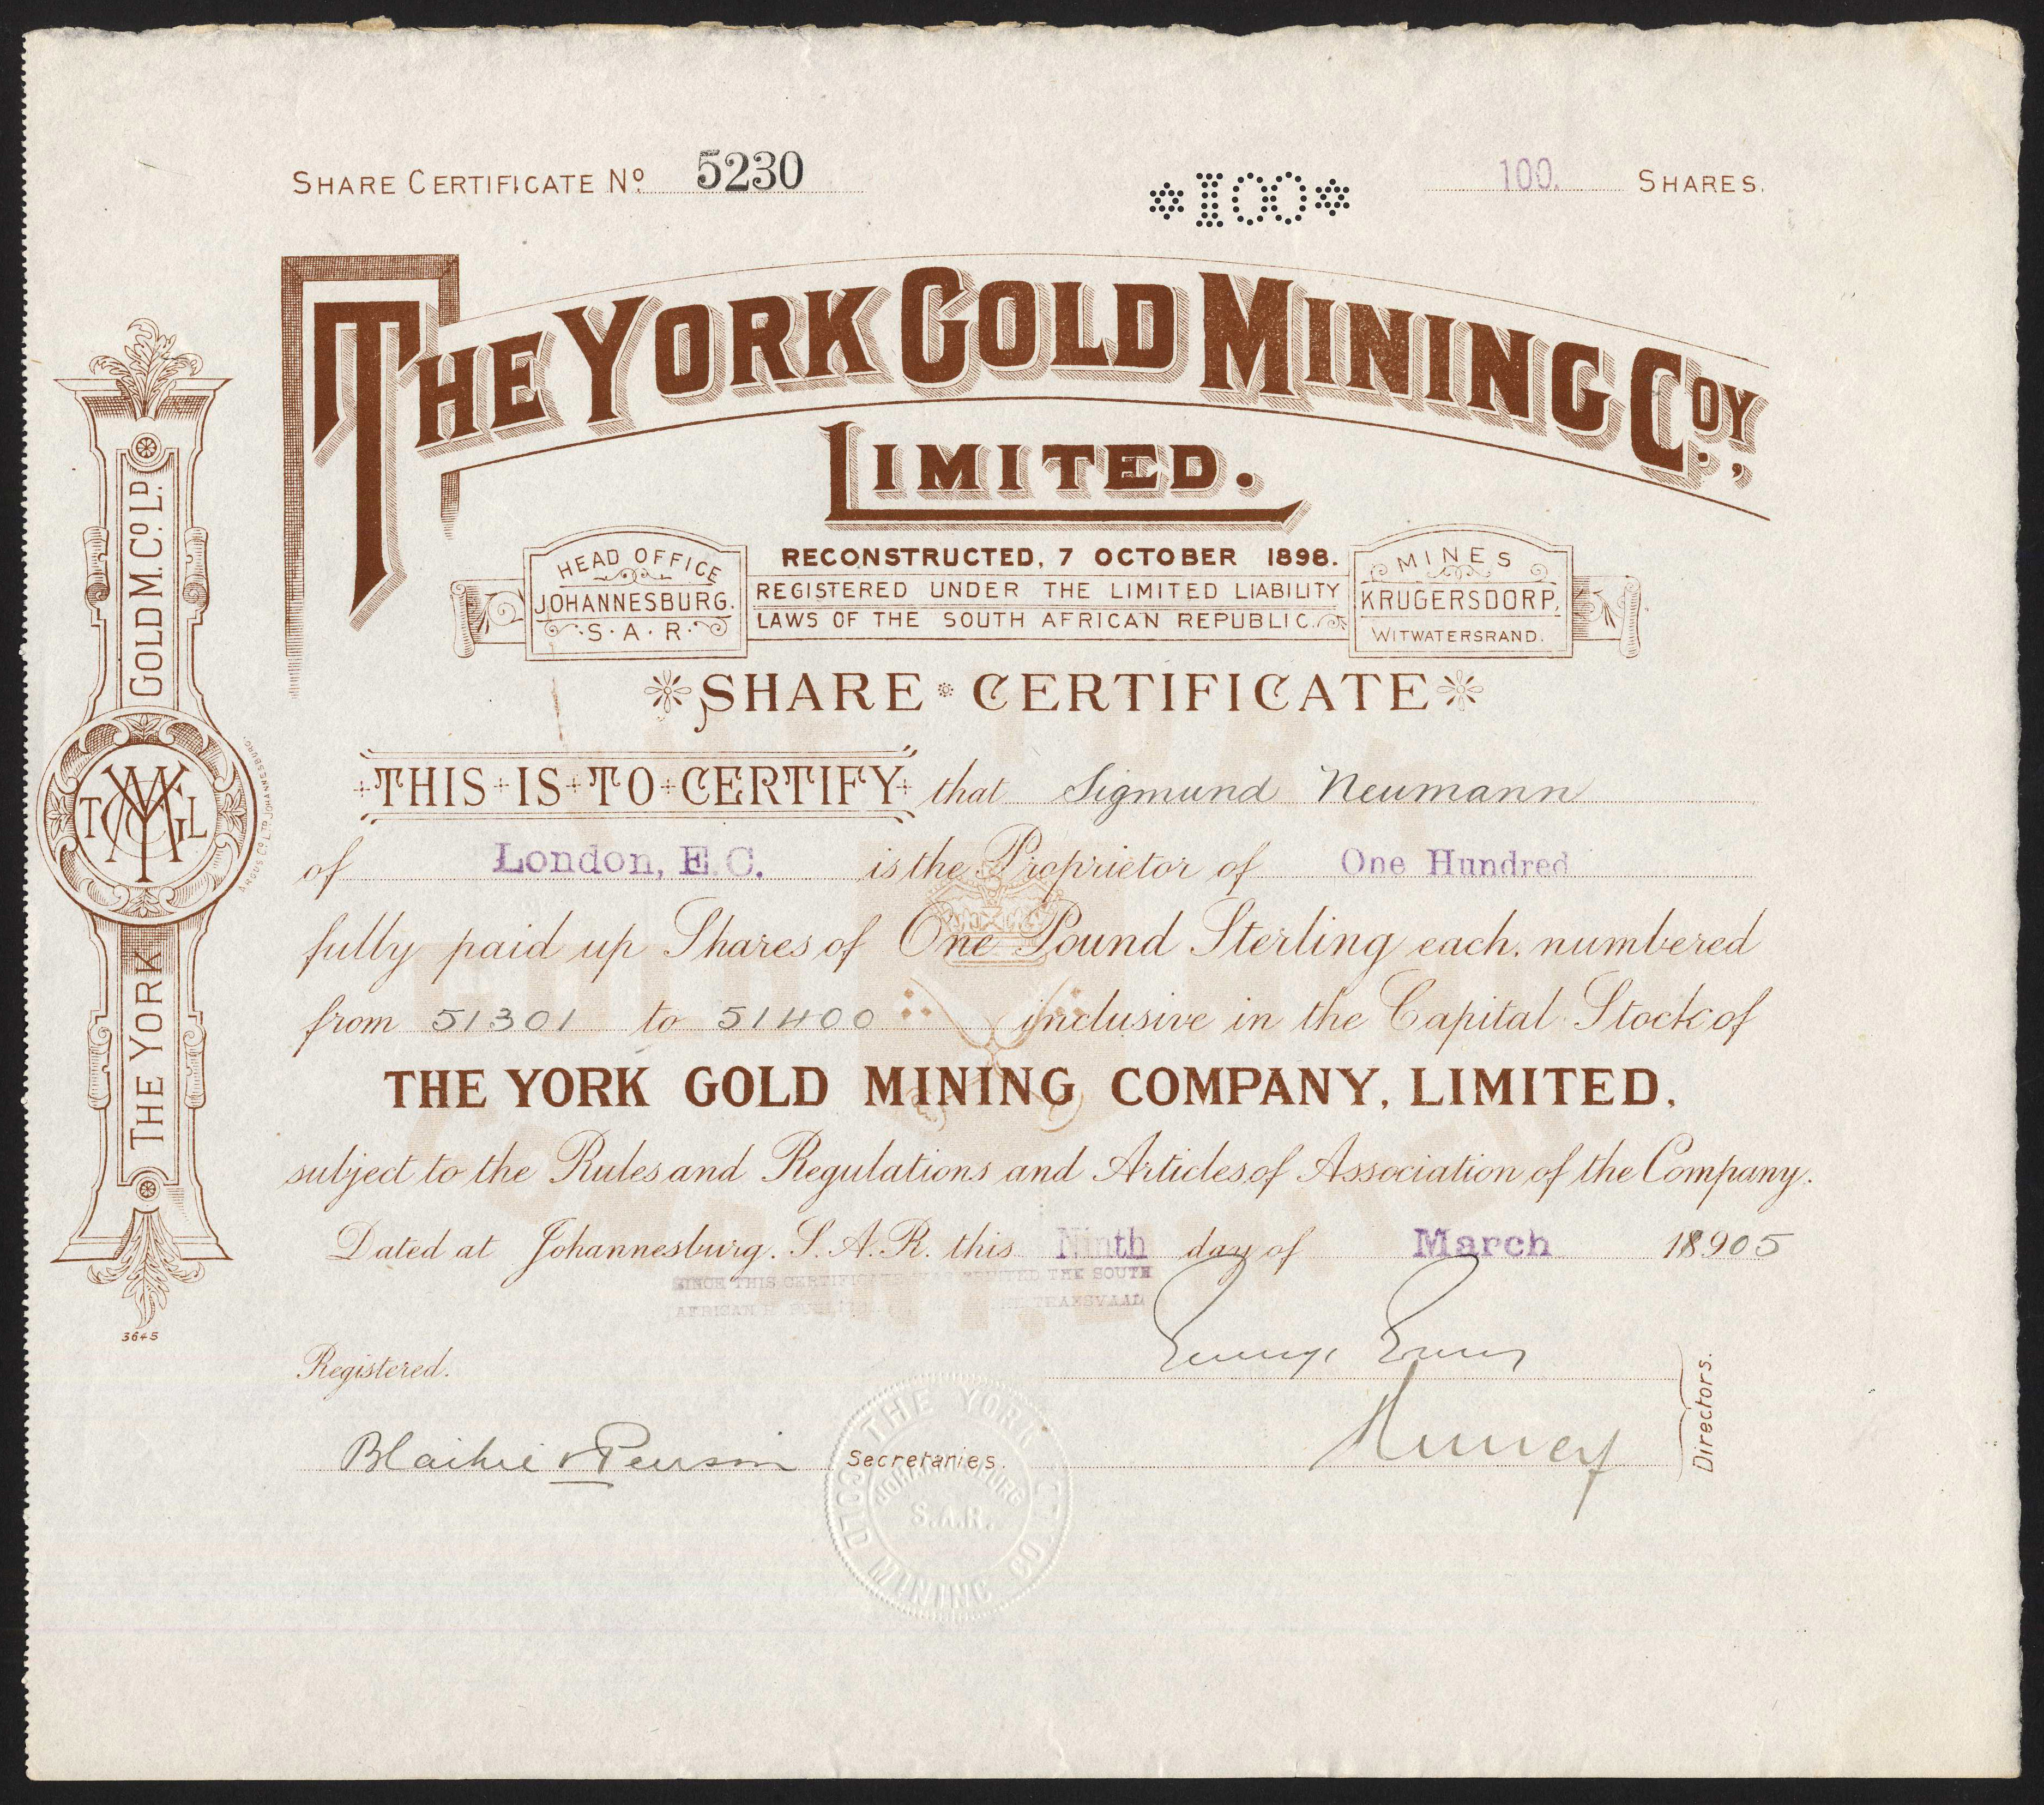 SHARE CERTIFICATE Nº 5230
*100*
100. SHARES.
THE YORK GOLD MINING COY.,
LIMITED.
HEAD OFFICE
JOHANNESBURG.
S.A.R.
RECONSTRUCTED, 7 OCTOBER 1898.
REGISTERED UNDER THE LIMITED LIABILITY
LAWS OF THE SOUTH AFRICAN REPUBLIC.
MINES
KRUGERSDORP,
WITWATERSRAND.
SHARE CERTIFICATE
THIS IS TO CERTIFY that Sigmund Neumann
of London, E.C. is the Proprietor of One Hundred
fully paid up Shares of One Pound Sterling each, numbered
from 51301 to 51400 inclusive in the Capital Stock of
THE YORK GOLD MINING COMPANY, LIMITED,
subject to the Rules and Regulations and Articles of Association of the Company.
Dated at Johannesburg, S.A.R. this Ninth day of March 18905
SINCE THIS CERTIFICATE WAS PRINTED THE SOUTH
AFRICAN TRANSVAAL
Registered.
Blaikie & Secretaries.
Directors.
THE YORK GOLD MINING CO.
JOHANNESBURG
S.A.R.
THE YORK GOLD M. Cº. LD.
ARGUS Cº. LTD. JOHANNESBURG.
3645